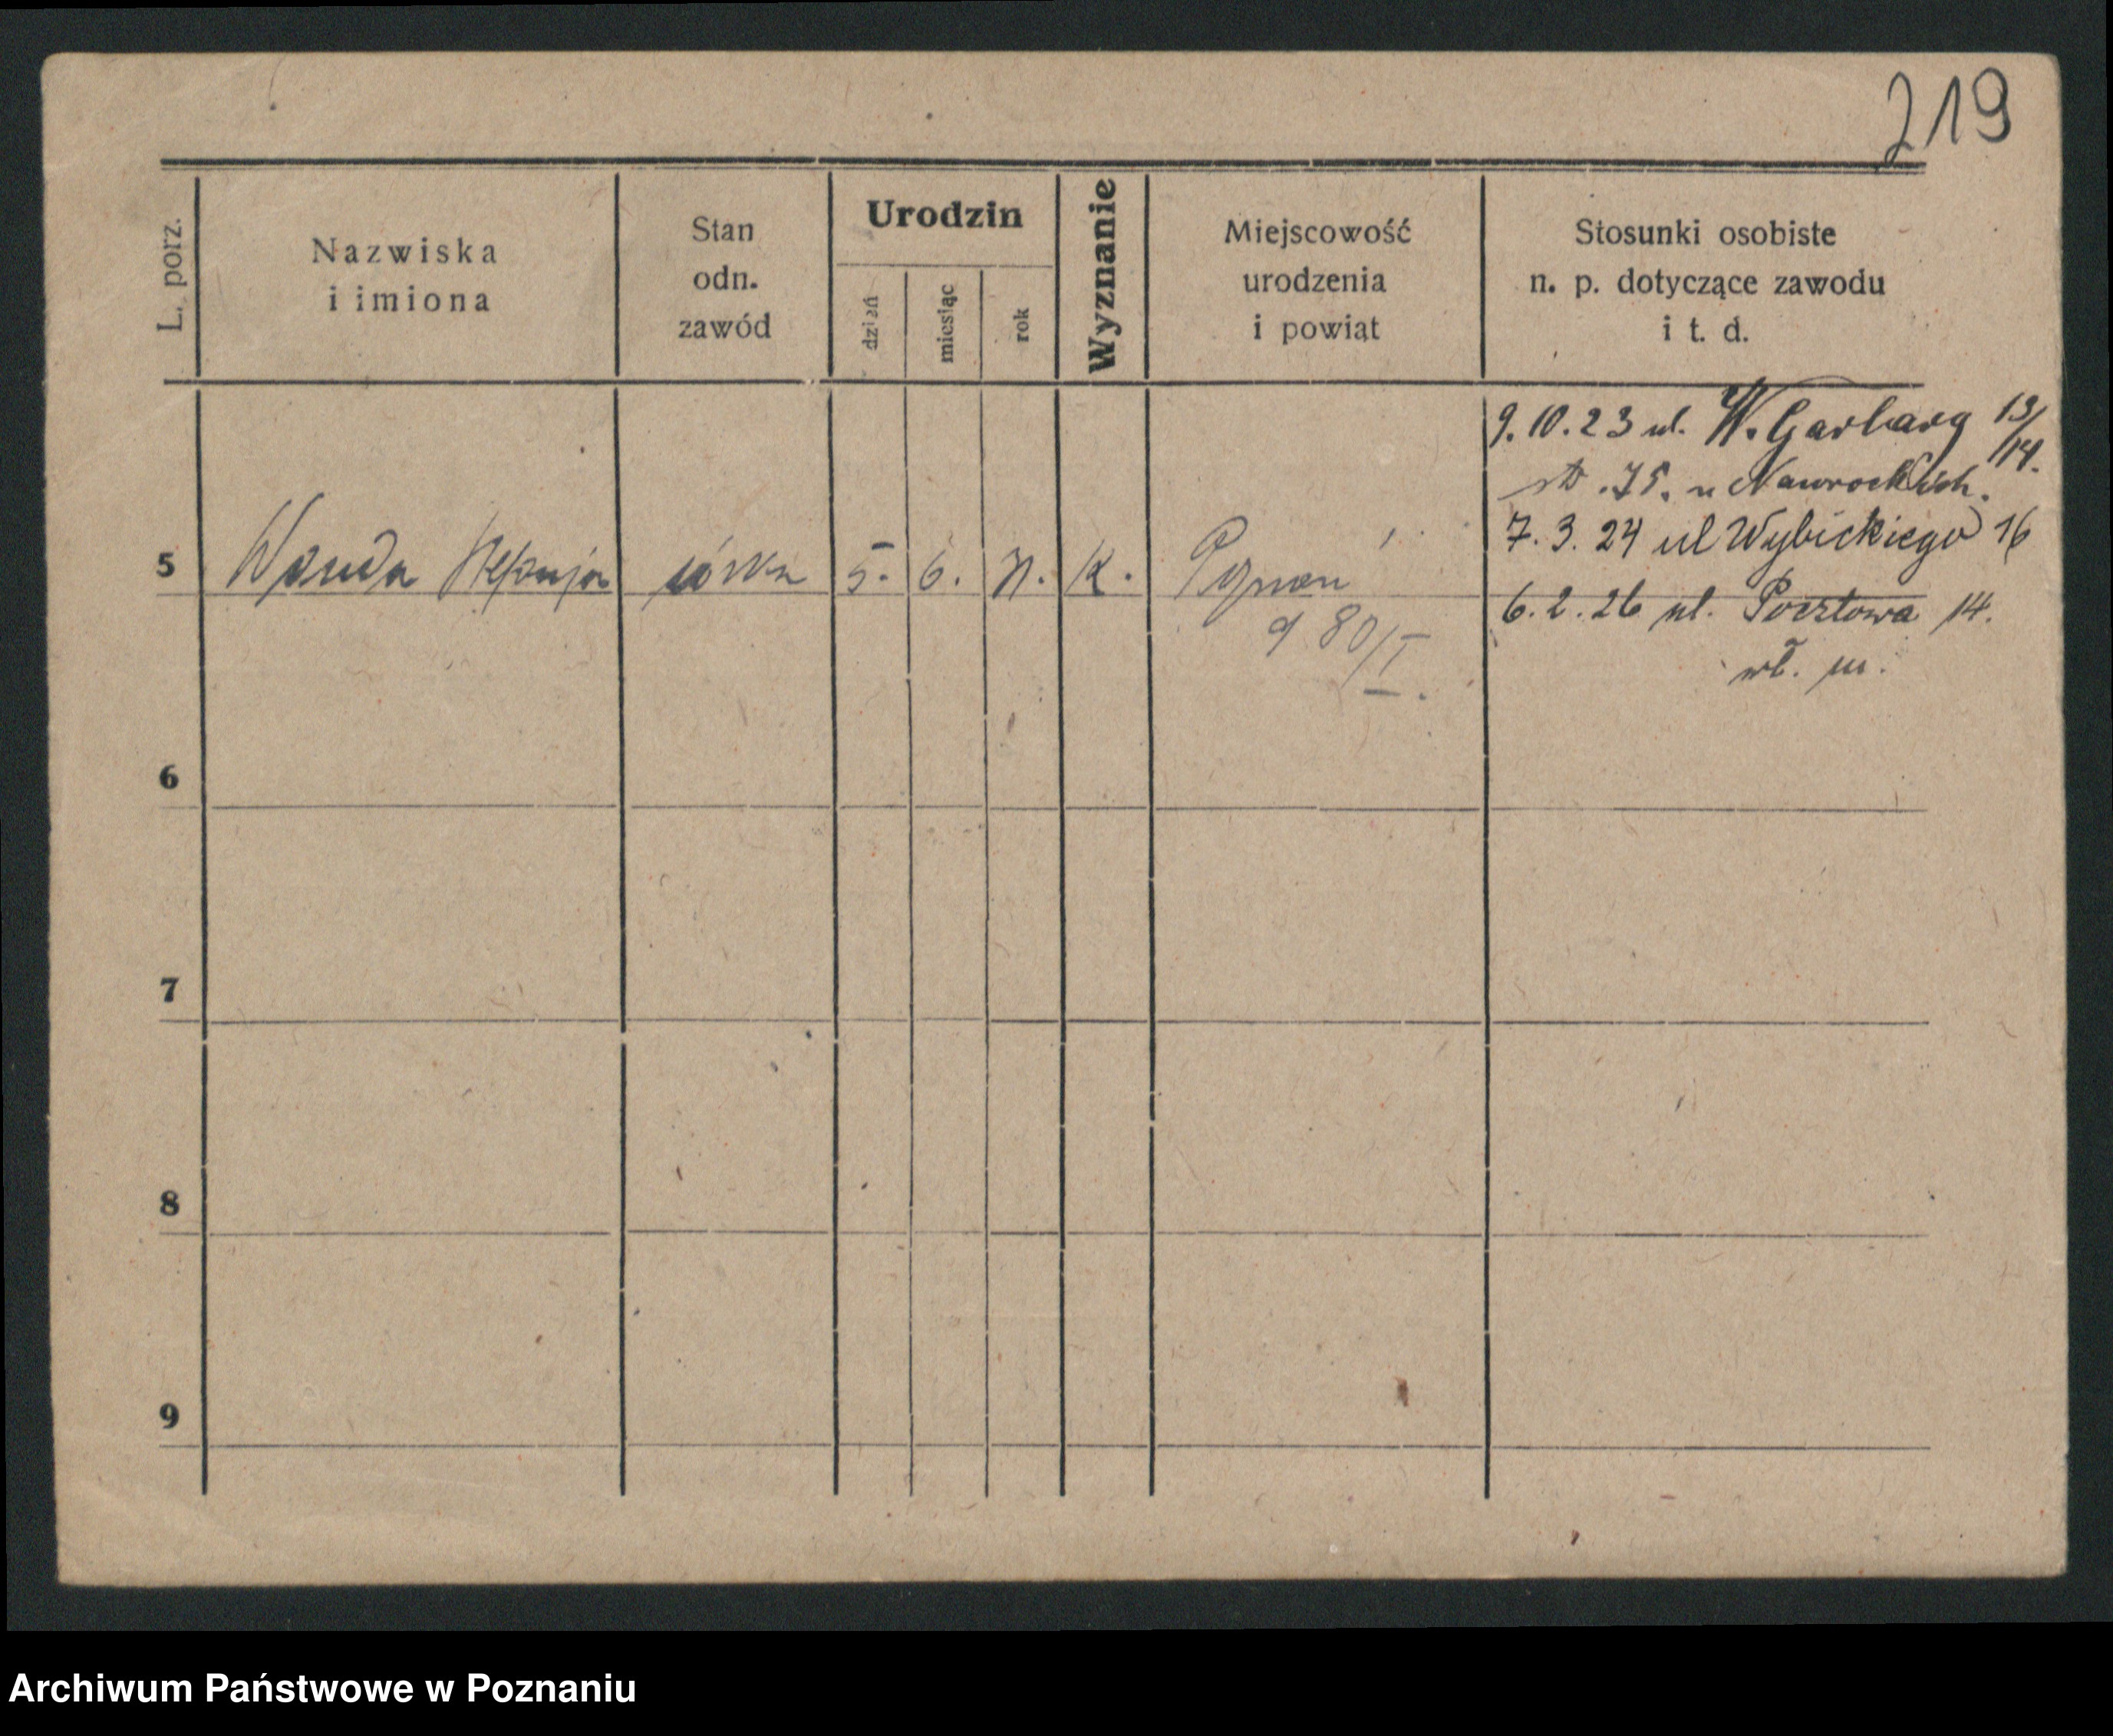 219
L. porz.
Nazwiska
i imiona
Stan
odn.
zawód
Urodzin
dzień
miesiąc
rok
Wyznanie
Miejscowość
urodzenia
i powiat
Stosunki osobiste
n. p. dotyczące zawodu
i t. d.
9.10.23 ul. W. Garbary 13/14.
75. u Nawrockich.
7.3.24 ul Wybickiego 16
5 Wanda Stefanja córka 5. 6. K. Poznań
6.2.26 ul. Pocztowa 14.
80/I.
wł. m.
6
7
8
9
Archiwum Państwowe w Poznaniu